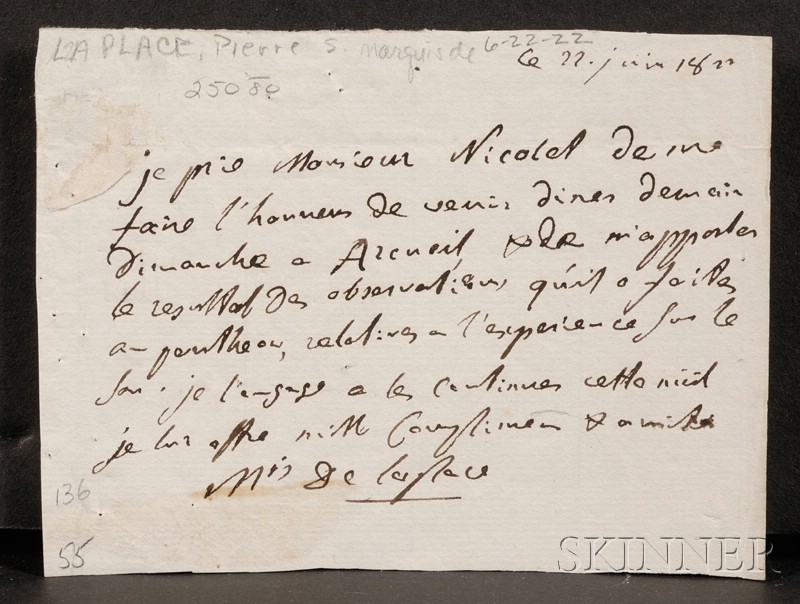 LA PLACE, Pierre S. Marquis de 6-22-22
250 80
Ce 22. juin 1822
je prie Monsieur Nicolet de me
faire l'honneur de venir diner demain
Dimanche a Arcueil, & de m'apporter
le resultat des observations qu'il a faites
au pantheon, relatives a l'experience sur le
son. je l'engage a les continuer cette nuit
je lui offre mille Complimens & amitiés
Mis De laplace
136
55
SKINNER